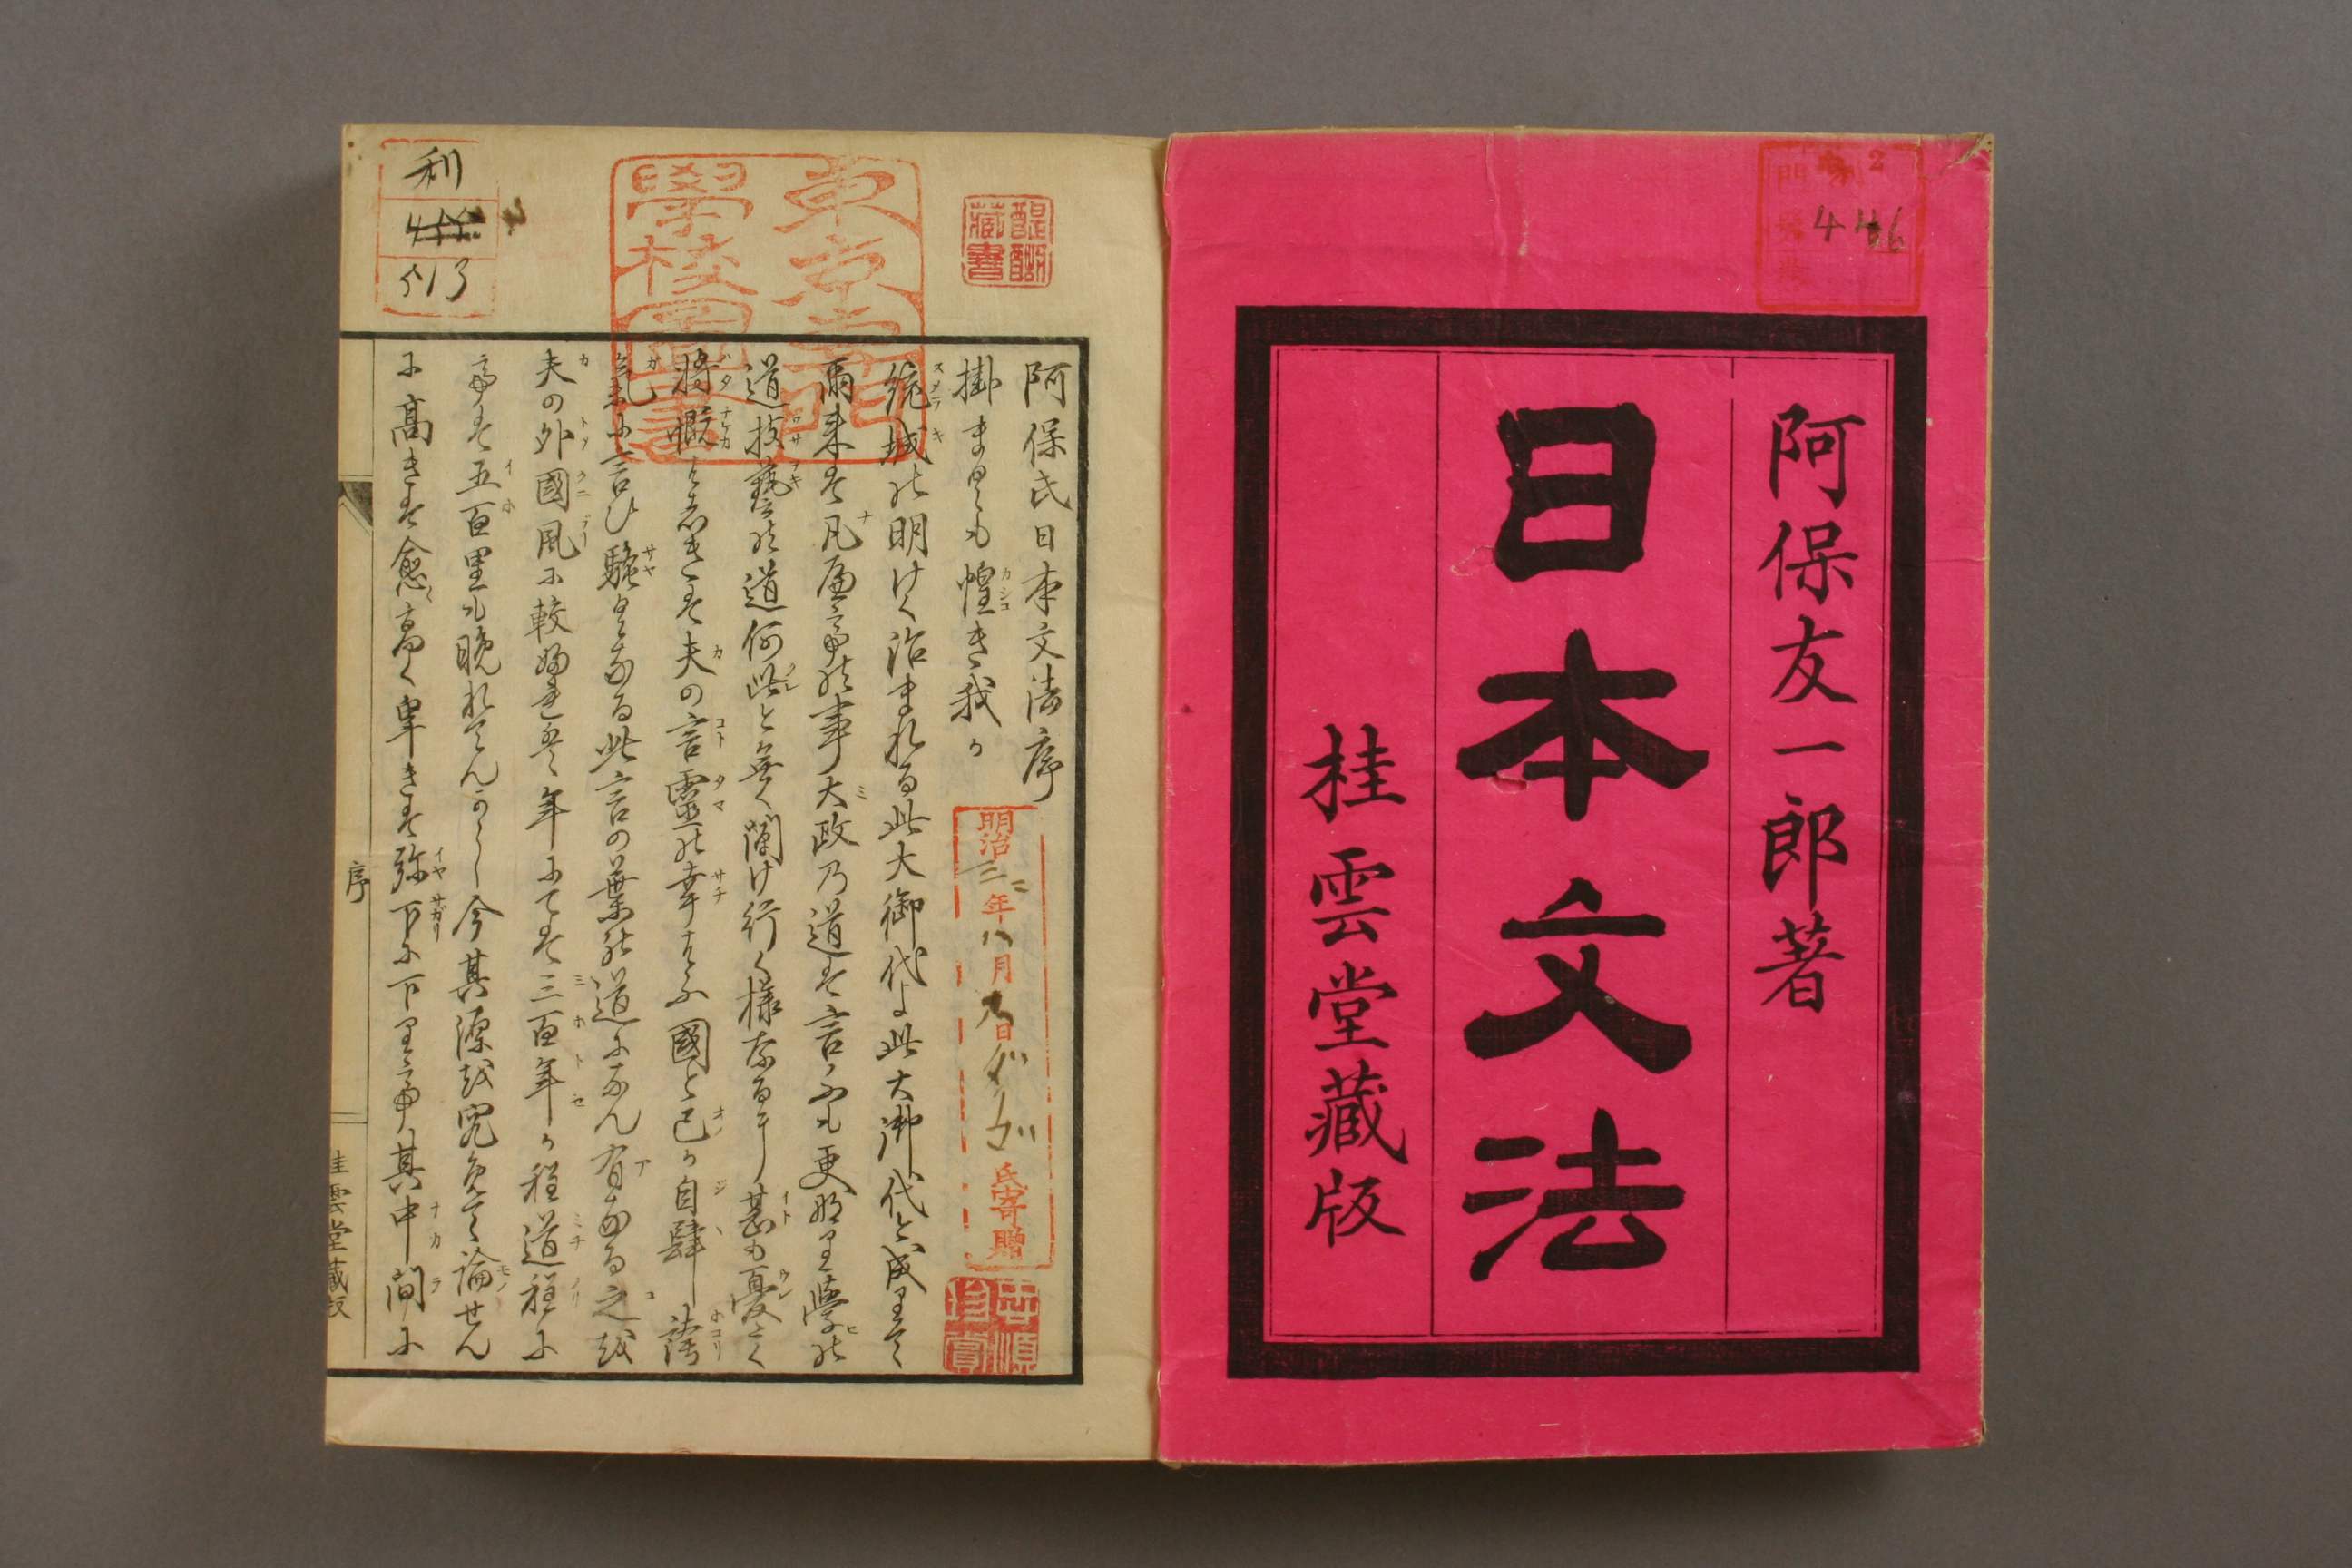 阿保友一郎著
日本文法
桂雲堂藏版
2
446
東京專門
學校圖書
醍醐
藏書
利
513
阿保氏日本文法序
掛まくも惶き我が
統域の明けく治まれる此大御代よ此大御代と成りて
爾来は凡庿事の事大政乃道は言ふも更なり學の
道技藝の道何此と無く開け行く様なるが甚も憂く
将慨
夫の言靈の幸はふ國と己が自肆し誇
言ひ騒 此言の葉の道になん有ける之を
夫の外國風に較ぶれば年にては三百年が程道程に
五百里も晩れてん今其源を究めて論せん
に高きは愈〻高く卑きは弥下に下り其中間に
明治三二年八月九日
氏寄贈
序
桂雲堂藏版